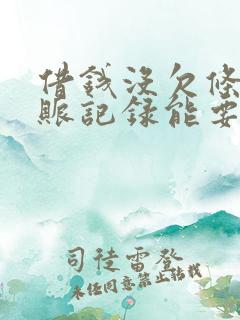 借錢沒欠條
賬記録能要
司徒雷登
未任同意禁止轉載